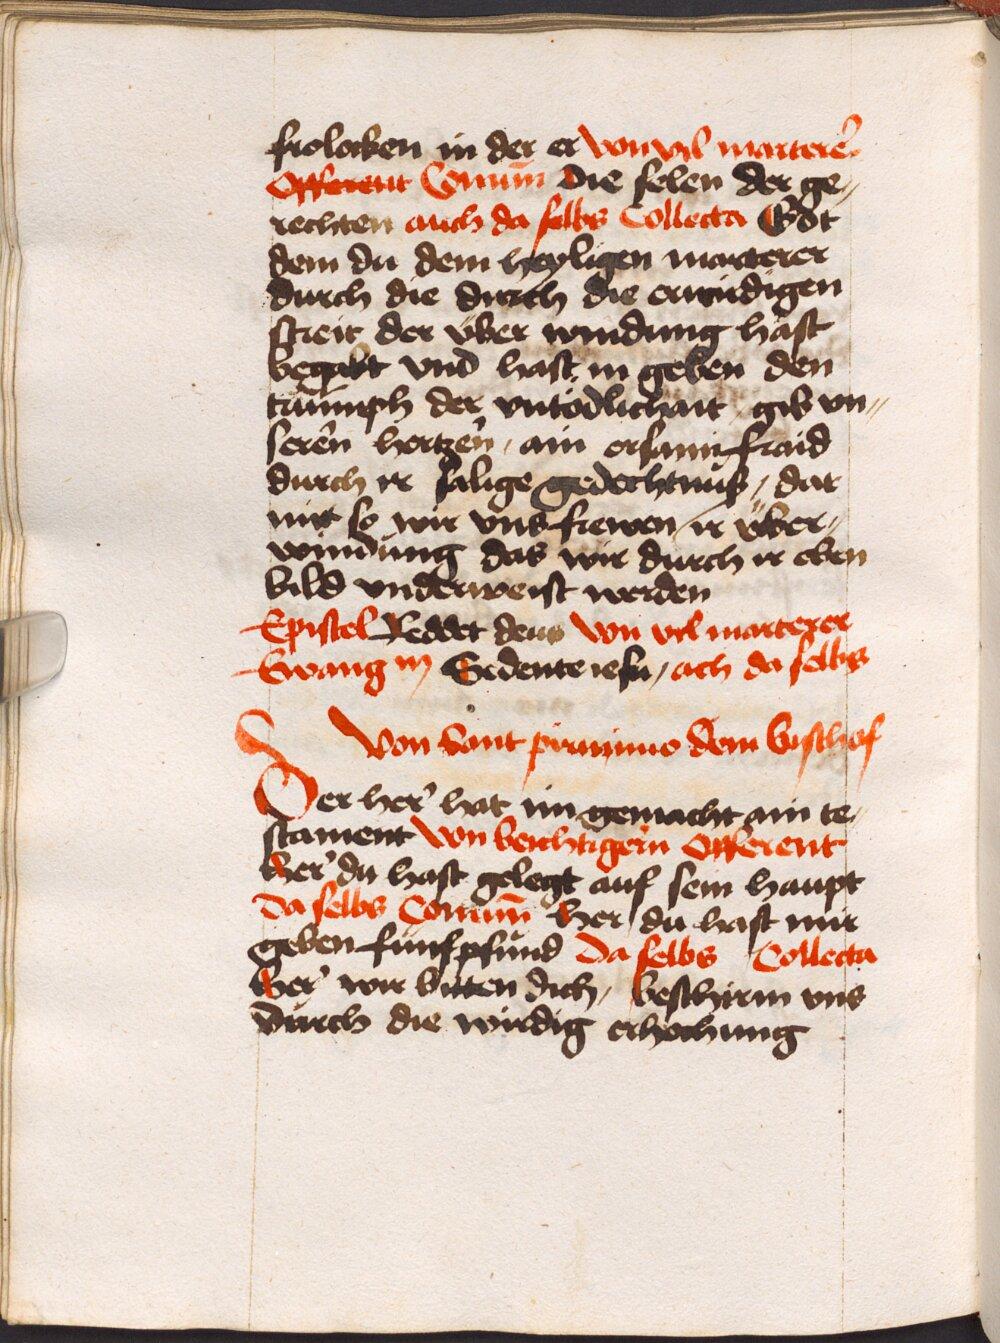 frolocken in der er von vil marterer̄
Offerent Comūn Die selen der ge-
rechten auch da selbs Collecta Got
dem du dem heyligen marterer
durch die durch die erwirdigen
streit der über windung hast
begabt vnd hast in geben den
triumph der vntödlichait gib vn-
seren hertzen ain ersami fraid
durch ir salige gedechtnuß / dar
mit so wir vns frewen ir über-
windung das wir durch ir eben
bild vnderweist werden
Epistel Reddet deus von vil marterer
Ewang Sedente iesu / ach da selbs
Von Sant pirminio dem bischof
Der her hat im gemacht ain te-
stament von beichtigern Offerent
her du hast gelegt auf sein haupt
Da selbs Comūn Her du hast mir
geben fünf pfund Da selbs Collecta
her wir bitten dich / beschirm vns
durch die wirdig erhochung